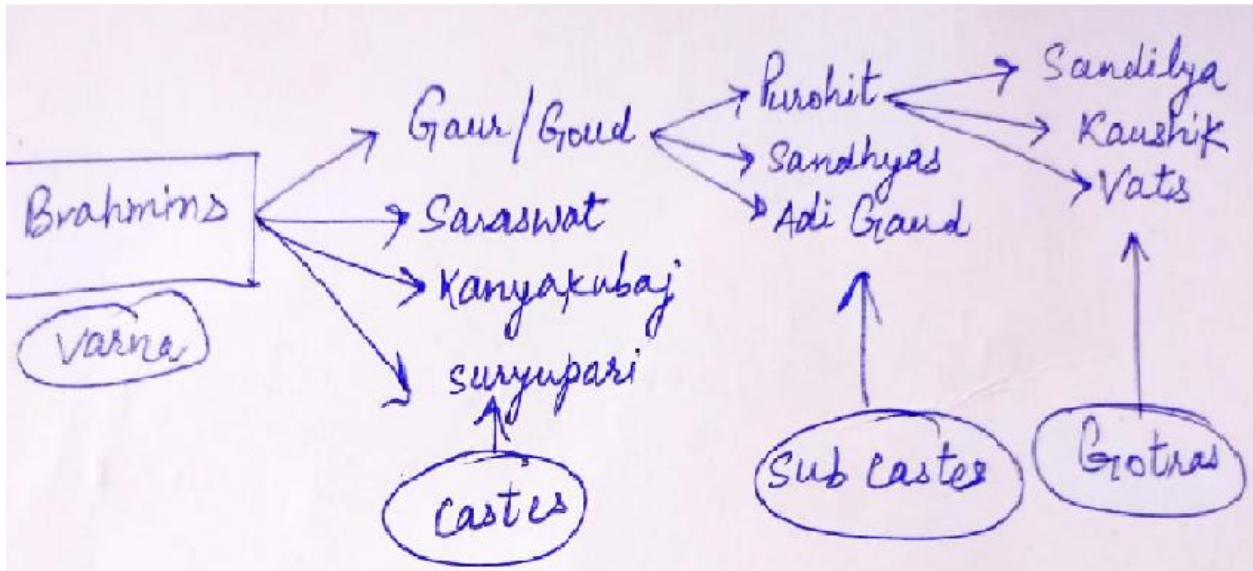 Brahmins
Varna
Gaur/Goud
Saraswat
Kanyakubaj
Suryupari
Castes
Purohit
Sandhyas
Adi Gaud
Sub Castes
Sandilya
Kaushik
Vats
Gotras